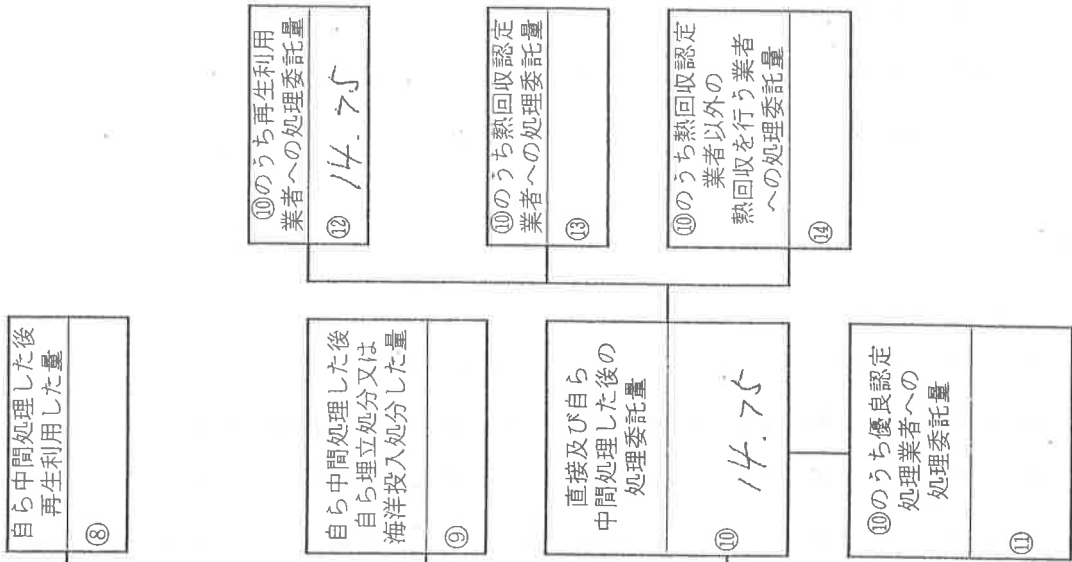 自ら中間処理した後
再生利用した量
⑧
自ら中間処理した後
自ら埋立処分又は
海洋投入処分した量
⑨
直接及び自ら
中間処理した後の
処理委託量
⑩ 14.75
⑩のうち優良認定
処理業者への
処理委託量
⑪
⑩のうち再生利用
業者への処理委託量
⑫ 14.75
⑩のうち熱回収認定
業者への処理委託量
⑬
⑩のうち熱回収認定
業者以外の
熱回収を行う業者
への処理委託量
⑭